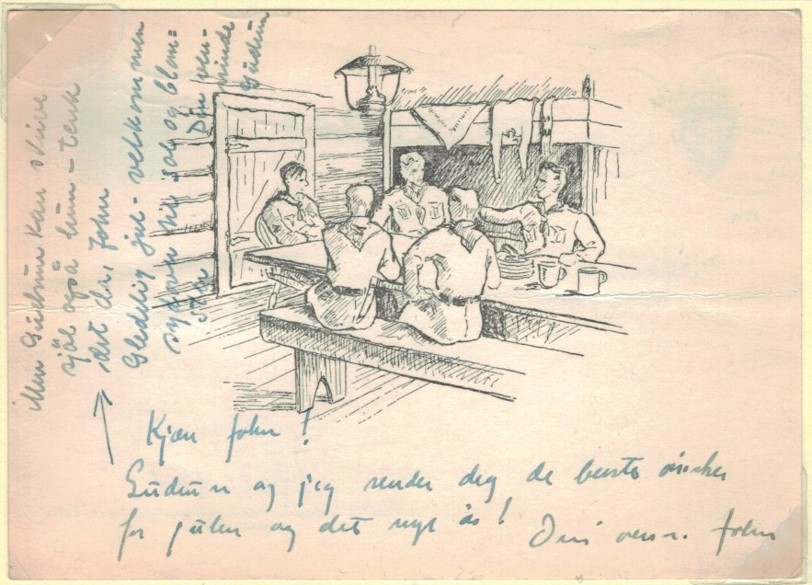 Kjære John!
Gudrun og jeg sender deg de beste ønsker
for julen og det nye år! Din venn. John
Men Gudrun kan skrive
sjøl også hun - tenk
det du, John
Gledelig jul - velkommen
sydover til sol og blom=
ster Din ven=
ninde
Gudrun